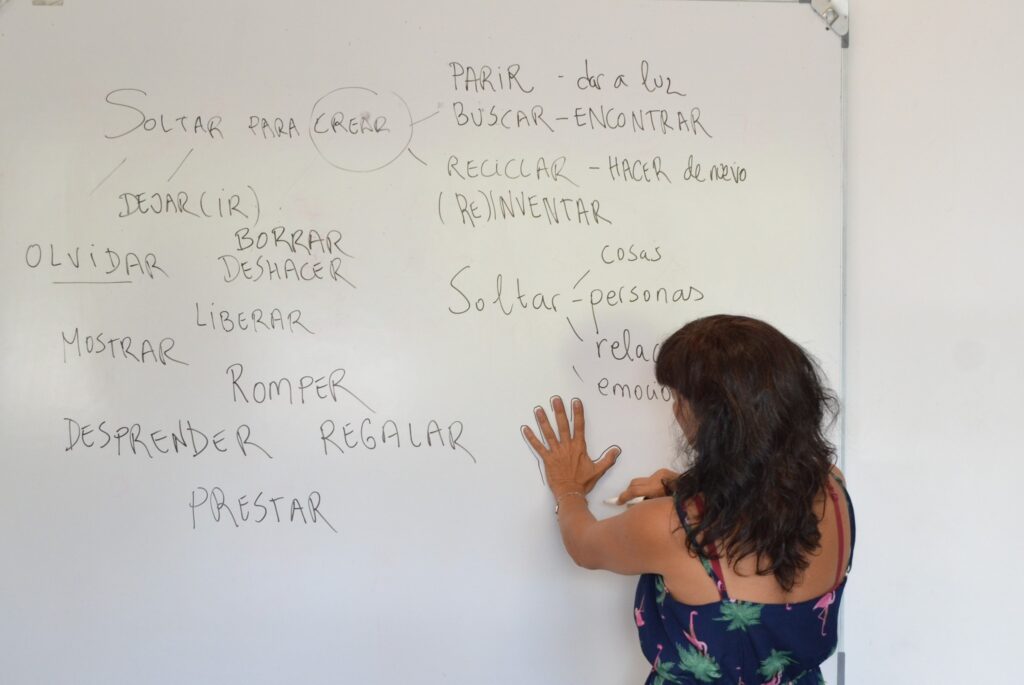 SOLTAR PARA CREAR
PARIR - dar a luz
BUSCAR - ENCONTRAR
RECICLAR - HACER de nuevo
(RE)INVENTAR
DEJAR (IR)
OLVIDAR
BORRAR
DESHACER
LIBERAR
MOSTRAR
ROMPER
DESPRENDER REGALAR
PRESTAR
Soltar - personas
cosas